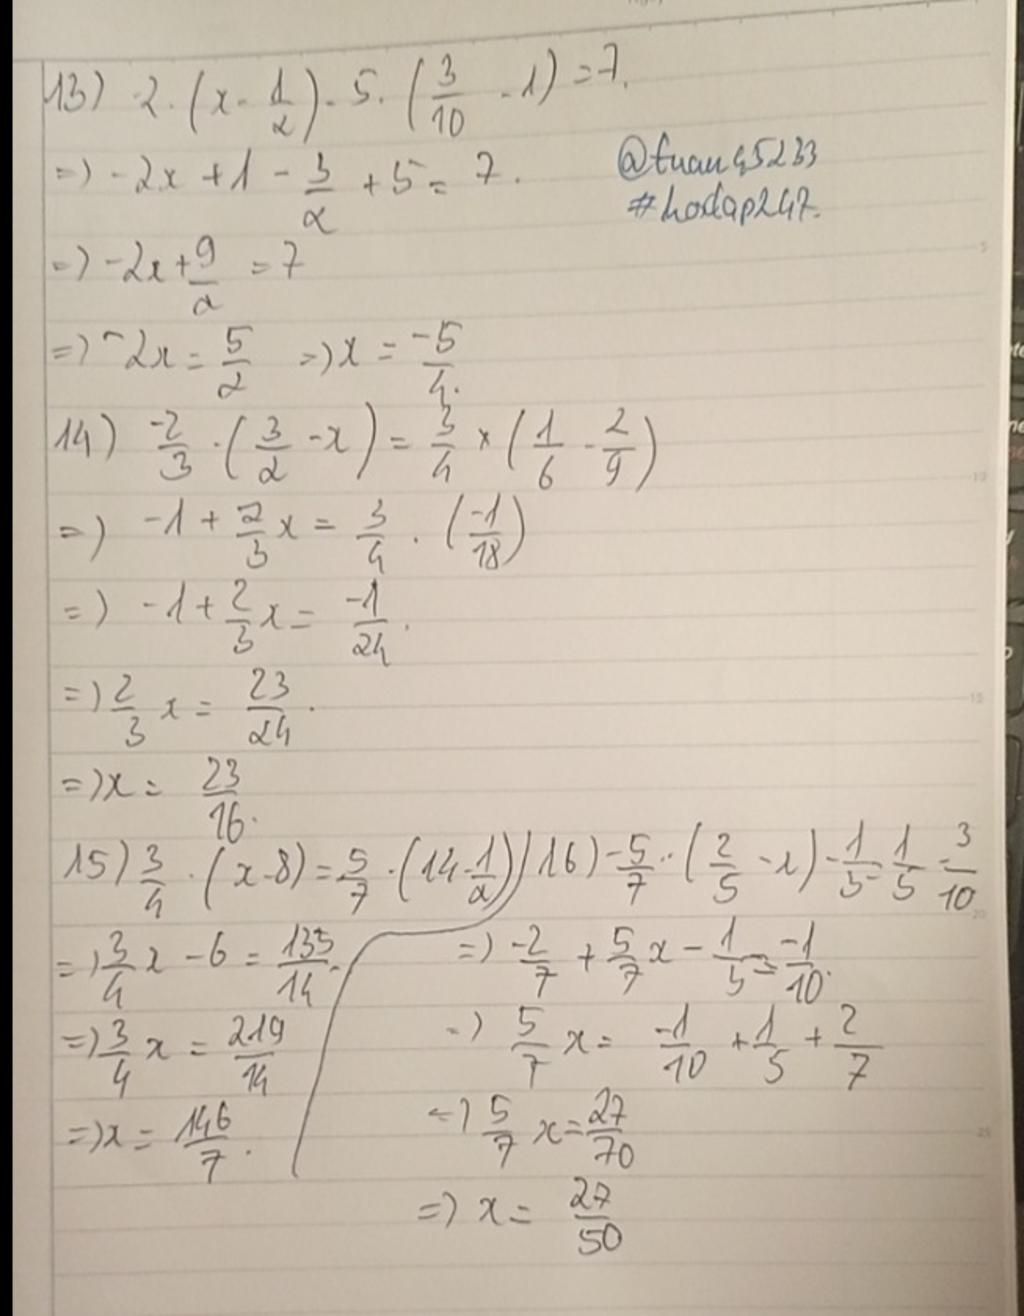 13) -2. (x - 1/2) - 5. (3/10 - 1) = 7.
=) -2x + 1 - 3/2 + 5 = 7.
@tuan45233
#hoidap247.
=) -2x + 9/2 = 7
=) -2x = 5/2 =) x = -5/4.
14) -2/3 . (3/2 - x) = 3/4 x (1/6 - 2/9)
=) -1 + 2/3 x = 3/4 . (-1/18)
=) -1 + 2/3 x = -1/24.
=) 2/3 x = 23/24.
=) x = 23/16.
15) 3/4 . (x - 8) = 5/7 . (14 - 1/2)
=) 3/4 x - 6 = 135/14.
=) 3/4 x = 219/14
=) x = 146/7.
16) -5/7 . (2/5 - x) - 1/5 = 1/5 - 3/10
=) -2/7 + 5/7 x - 1/5 = -1/10.
=) 5/7 x = -1/10 + 1/5 + 2/7
=) 5/7 x = 27/70
=) x = 27/50